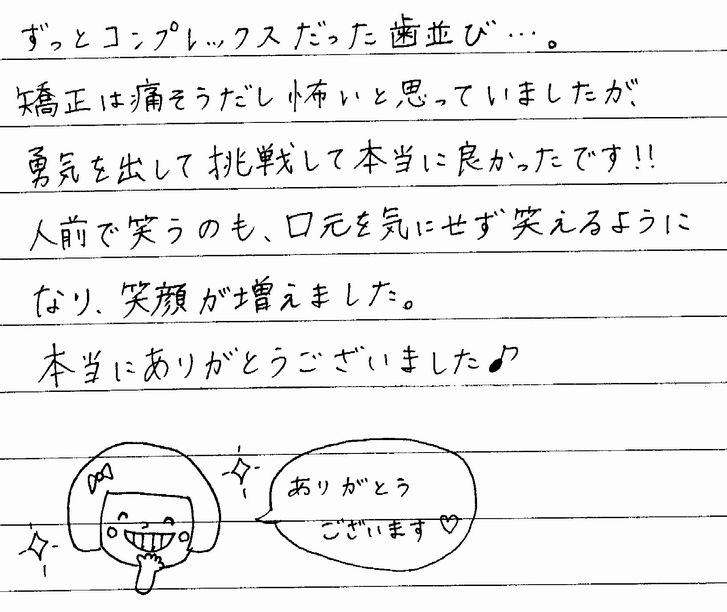 ずっとコンプレックスだった歯並び…。
矯正は痛そうだし怖いと思っていましたが、
勇気を出して挑戦して本当に良かったです!!
人前で笑うのも、口元を気にせず笑えるように
なり、笑顔が増えました。
本当にありがとうございました♪
ありがとう
ございます♡